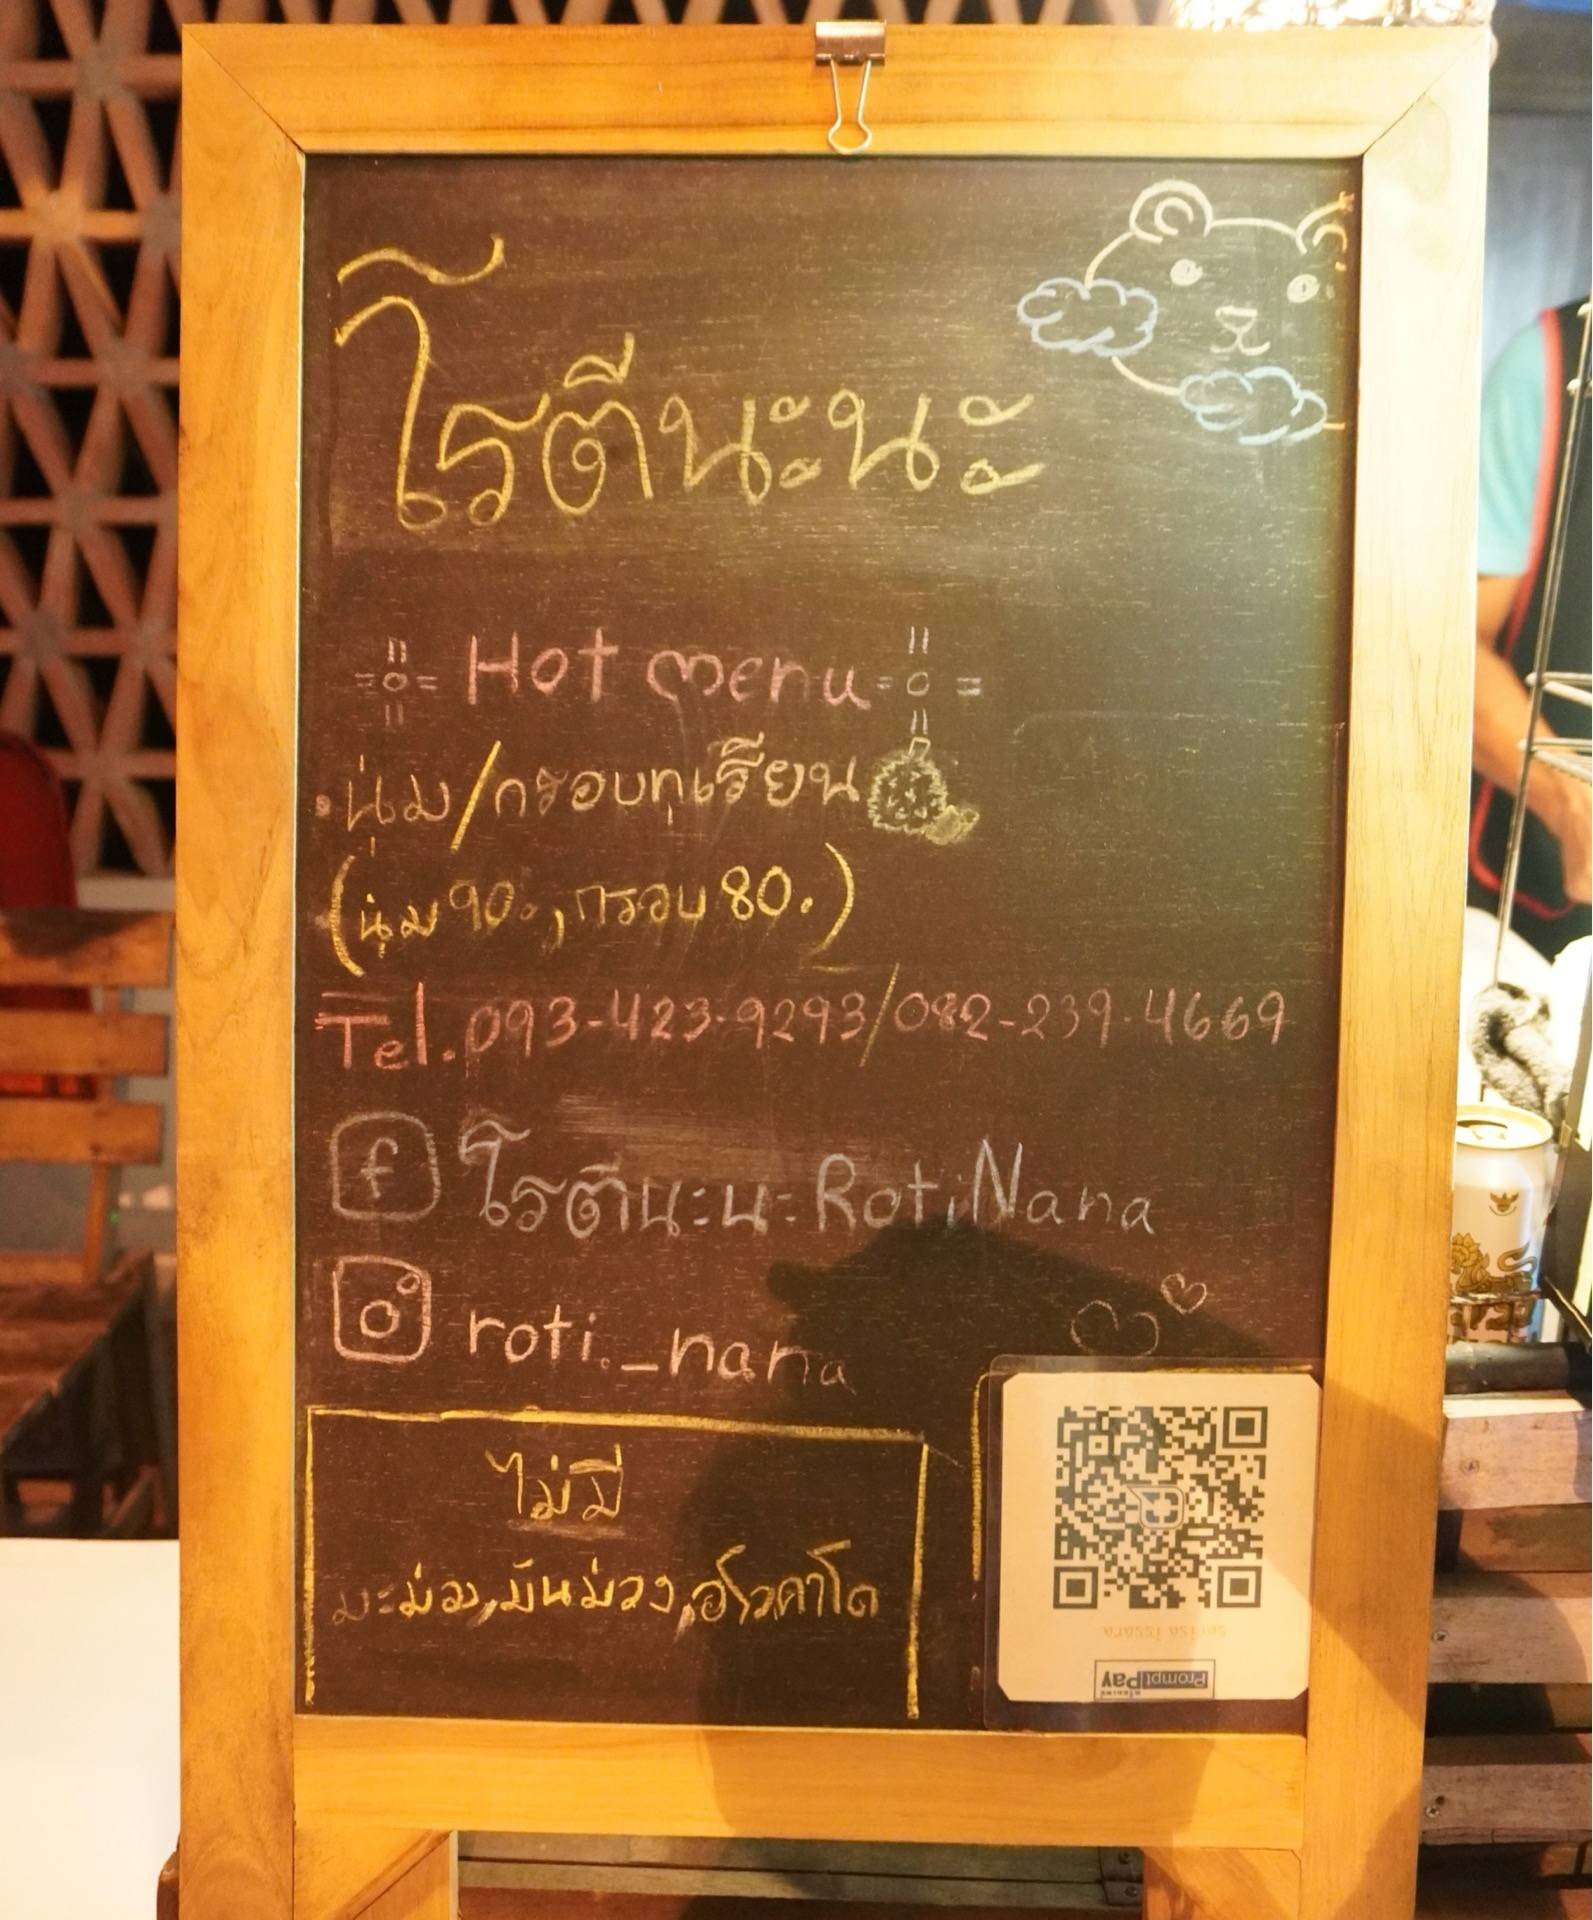 โรตีนะนะ
Hot menu
• นุ่ม/กรอบทุเรียน
(นุ่ม 90., กรอบ 80.)
Tel. 093-423-9293/082-239-4669
f โรตีนะนะ RotiNana
roti._nana
ไม่มี
มะม่วง, มันม่วง, อโวคาโด
Prompt
Pay